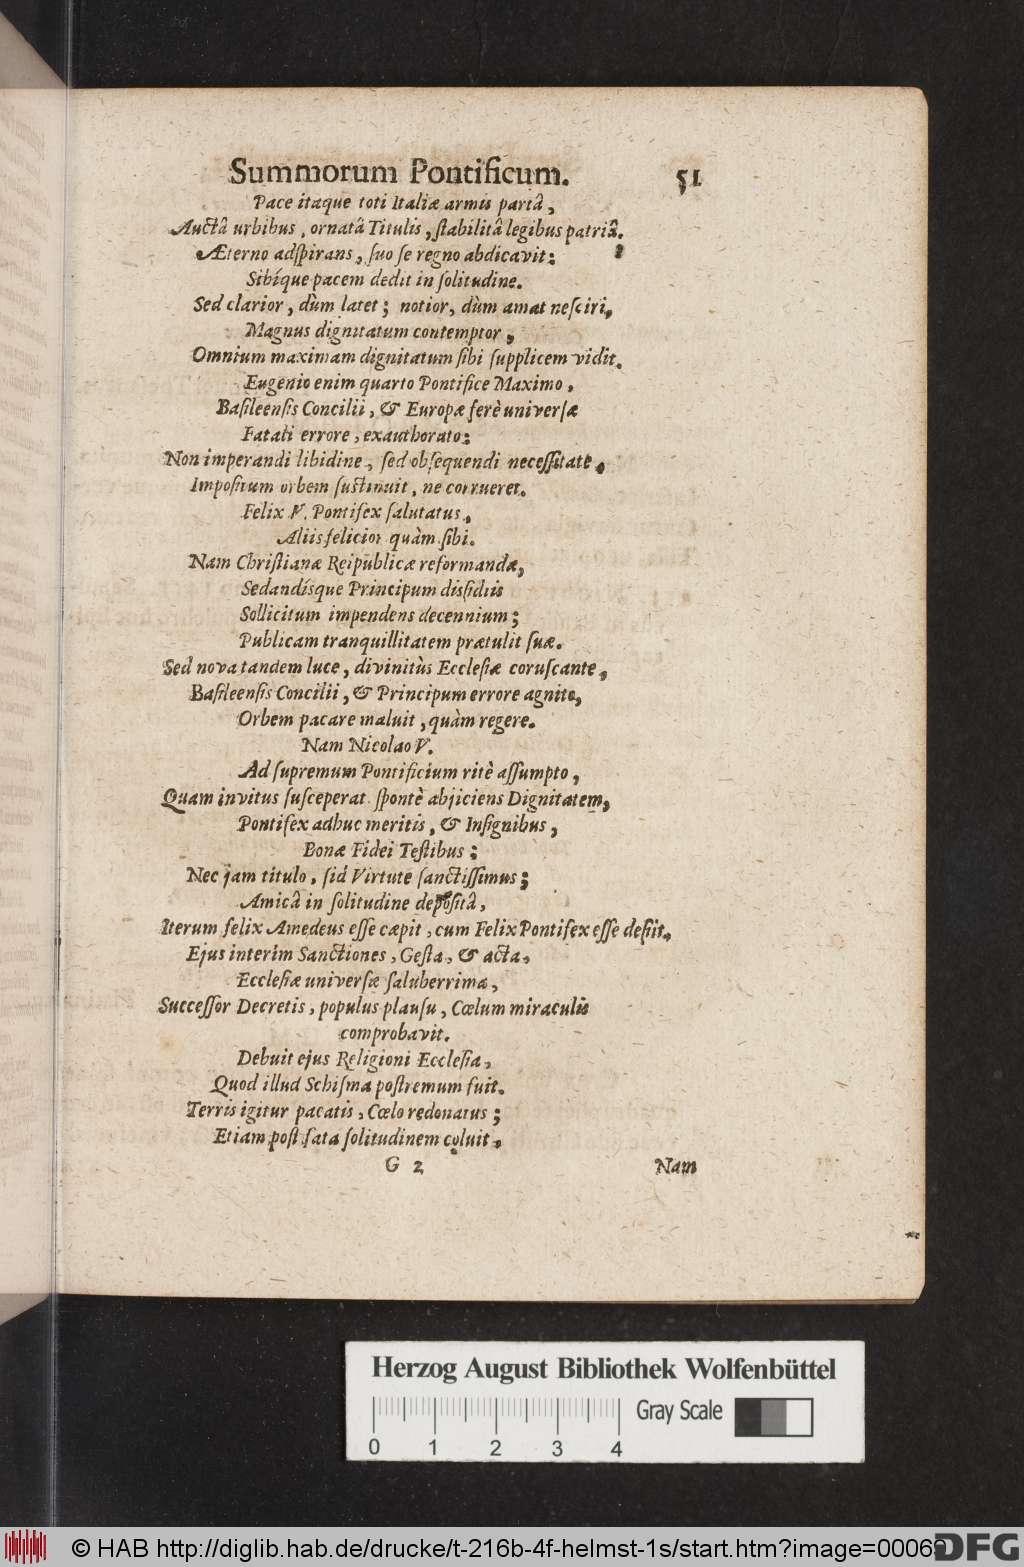 Summorum Pontificum. 51
Pace itaque toti Italiæ armis partâ,
Auctâ urbibus, ornatâ Titulis, ſtabilitâ legibus patriâ.
Æterno adſpirans, ſuo ſe regno abdicavit:
Sibíque pacem dedit in ſolitudine.
Sed clarior, dùm latet; notior, dùm amat neſciri,
Magnus dignitatum contemptor,
Omnium maximam dignitatum ſibi ſupplicem vidit.
Eugenio enim quarto Pontifice Maximo,
Baſileenſis Concilii, & Europæ ferè univerſæ
Fatali errore, exauthorato:
Non imperandi libidine, ſed obſequendi neceſſitate,
Impoſitum orbem ſuſtinuit, ne corrueret.
Felix V. Pontifex ſalutatus,
Aliis felicior quàm ſibi.
Nam Chriſtianæ Reipublicæ reformandæ,
Sedandísque Principum diſſidiis
Sollicitum impendens decennium;
Publicam tranquillitatem prætulit ſuæ.
Sed nova tandem luce, divinitùs Eccleſiæ coruſcante,
Baſileenſis Concilii, & Principum errore agnito,
Orbem pacare maluit, quàm regere.
Nam Nicolao V.
Ad ſupremum Pontificium ritè aſſumpto,
Quam invitus ſuſceperat ſpontè abjiciens Dignitatem,
Pontifex adhuc meritis, & Inſignibus,
Bonæ Fidei Teſtibus;
Nec jam titulo, ſid Virtute ſanctiſſimus;
Amicâ in ſolitudine depoſitâ,
Iterum felix Amedeus eſſe cæpit, cum Felix Pontifex eſſe deſiit.
Ejus interim Sanctiones, Geſta, & acta,
Eccleſiæ univerſæ ſaluberrima,
Succeſſor Decretis, populus plauſu, Cœlum miraculis
comprobavit.
Debuit ejus Religioni Eccleſia,
Quod illud Schiſma poſtremum fuit.
Terris igitur pacatis, Cœlo redonatus;
Etiam poſt fata ſolitudinem coluit,
G 2 Nam
Herzog August Bibliothek Wolfenbüttel
Gray Scale
0 1 2 3 4
© HAB http://diglib.hab.de/drucke/t-216b-4f-helmst-1s/start.htm?image=00069
DFG